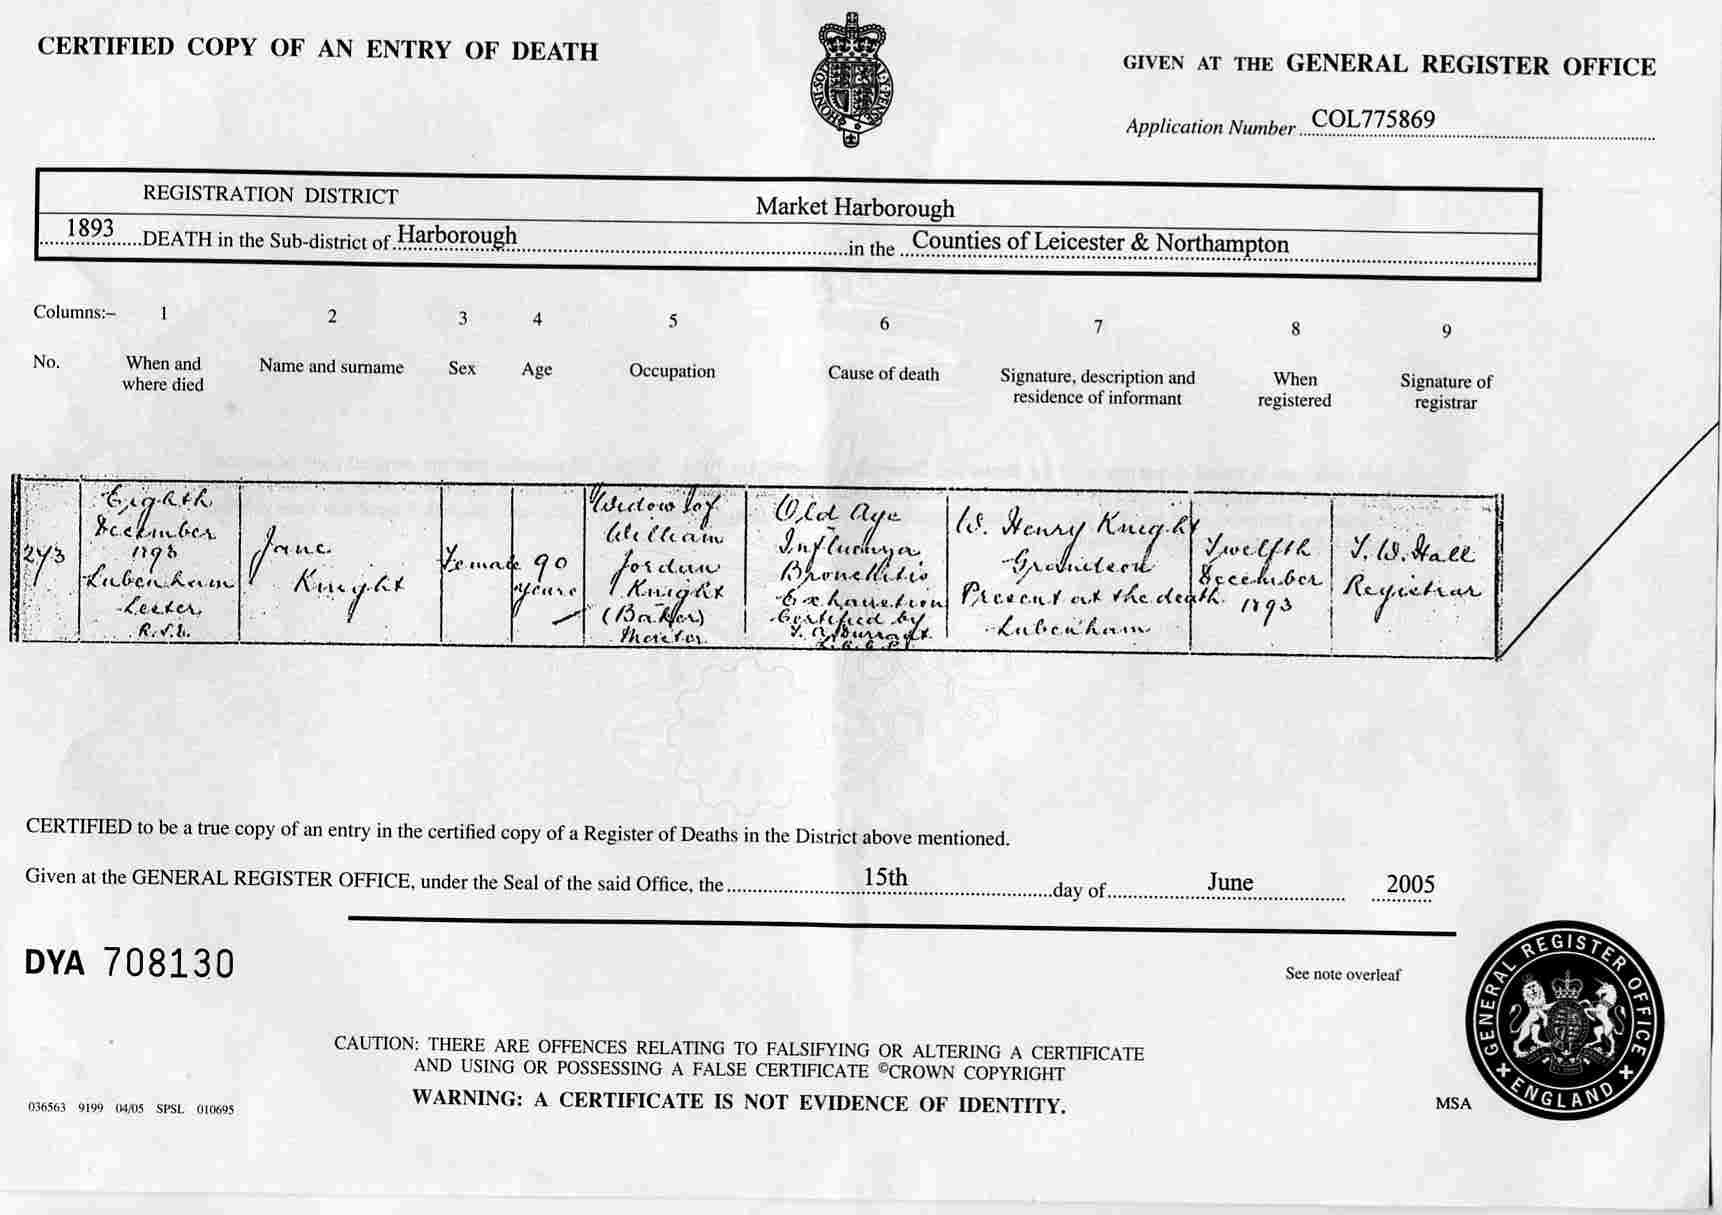 CERTIFIED COPY OF AN ENTRY OF DEATH
GIVEN AT THE GENERAL REGISTER OFFICE
Application Number COL775869
REGISTRATION DISTRICT Market Harborough
1893 DEATH in the Sub-district of Harborough in the Counties of Leicester & Northampton
Columns:– 1 2 3 4 5 6 7 8 9
No. When and where died Name and surname Sex Age Occupation Cause of death Signature, description and residence of informant When registered Signature of registrar
273
Eighth
December
1893
Lubenham
R.S.D.
Jane
Knight
Female
90
years
Widow of
William
Jordan
Knight
(Baker)
Master
Old Age
Influenza
Bronchitis
Exhaustion
Certified by
W. Henry Knight
Grandson
Present at the death
Lubenham
Twelfth
December
1893
T. W. Hall
Registrar
CERTIFIED to be a true copy of an entry in the certified copy of a Register of Deaths in the District above mentioned.
Given at the GENERAL REGISTER OFFICE, under the Seal of the said Office, the 15th day of June 2005
DYA 708130
See note overleaf
CAUTION: THERE ARE OFFENCES RELATING TO FALSIFYING OR ALTERING A CERTIFICATE
AND USING OR POSSESSING A FALSE CERTIFICATE ©CROWN COPYRIGHT
WARNING: A CERTIFICATE IS NOT EVIDENCE OF IDENTITY.
036563 9199 04/05 SPSL 010695
MSA
GENERAL REGISTER OFFICE
ENGLAND